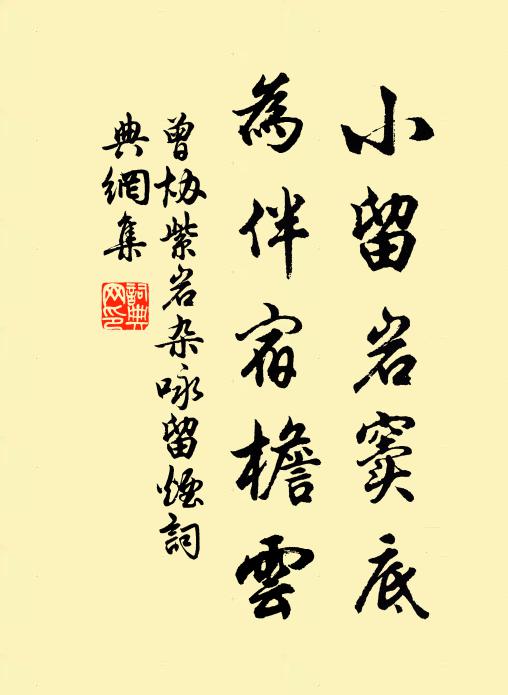 小留岩竇底
為伴宿檐雲
曾协紫岩杂咏留煙詞
典網集
詞典网印